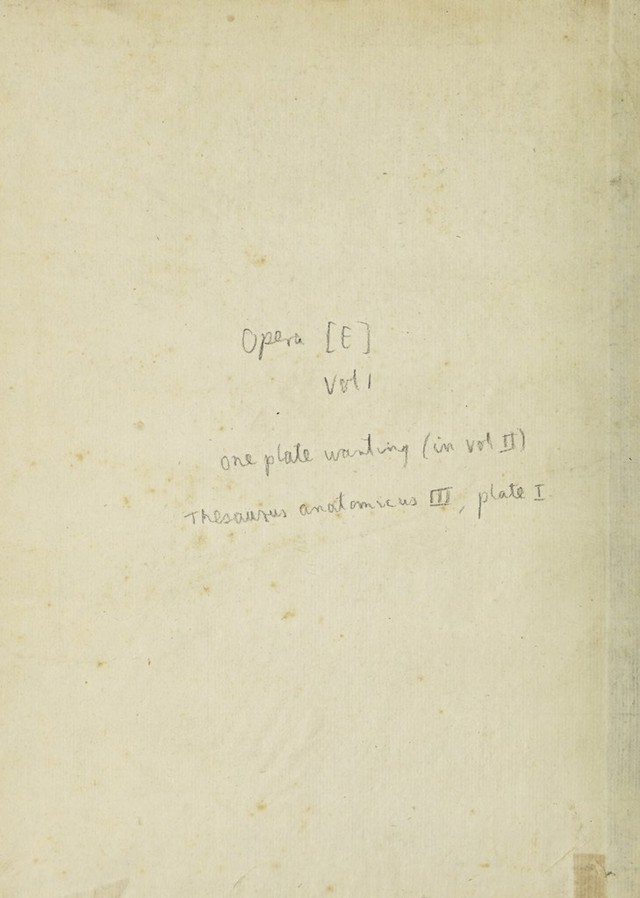 Opera [E]
Vol 1
one plate wanting (in vol II)
Thesaurus anatomicus III, plate I